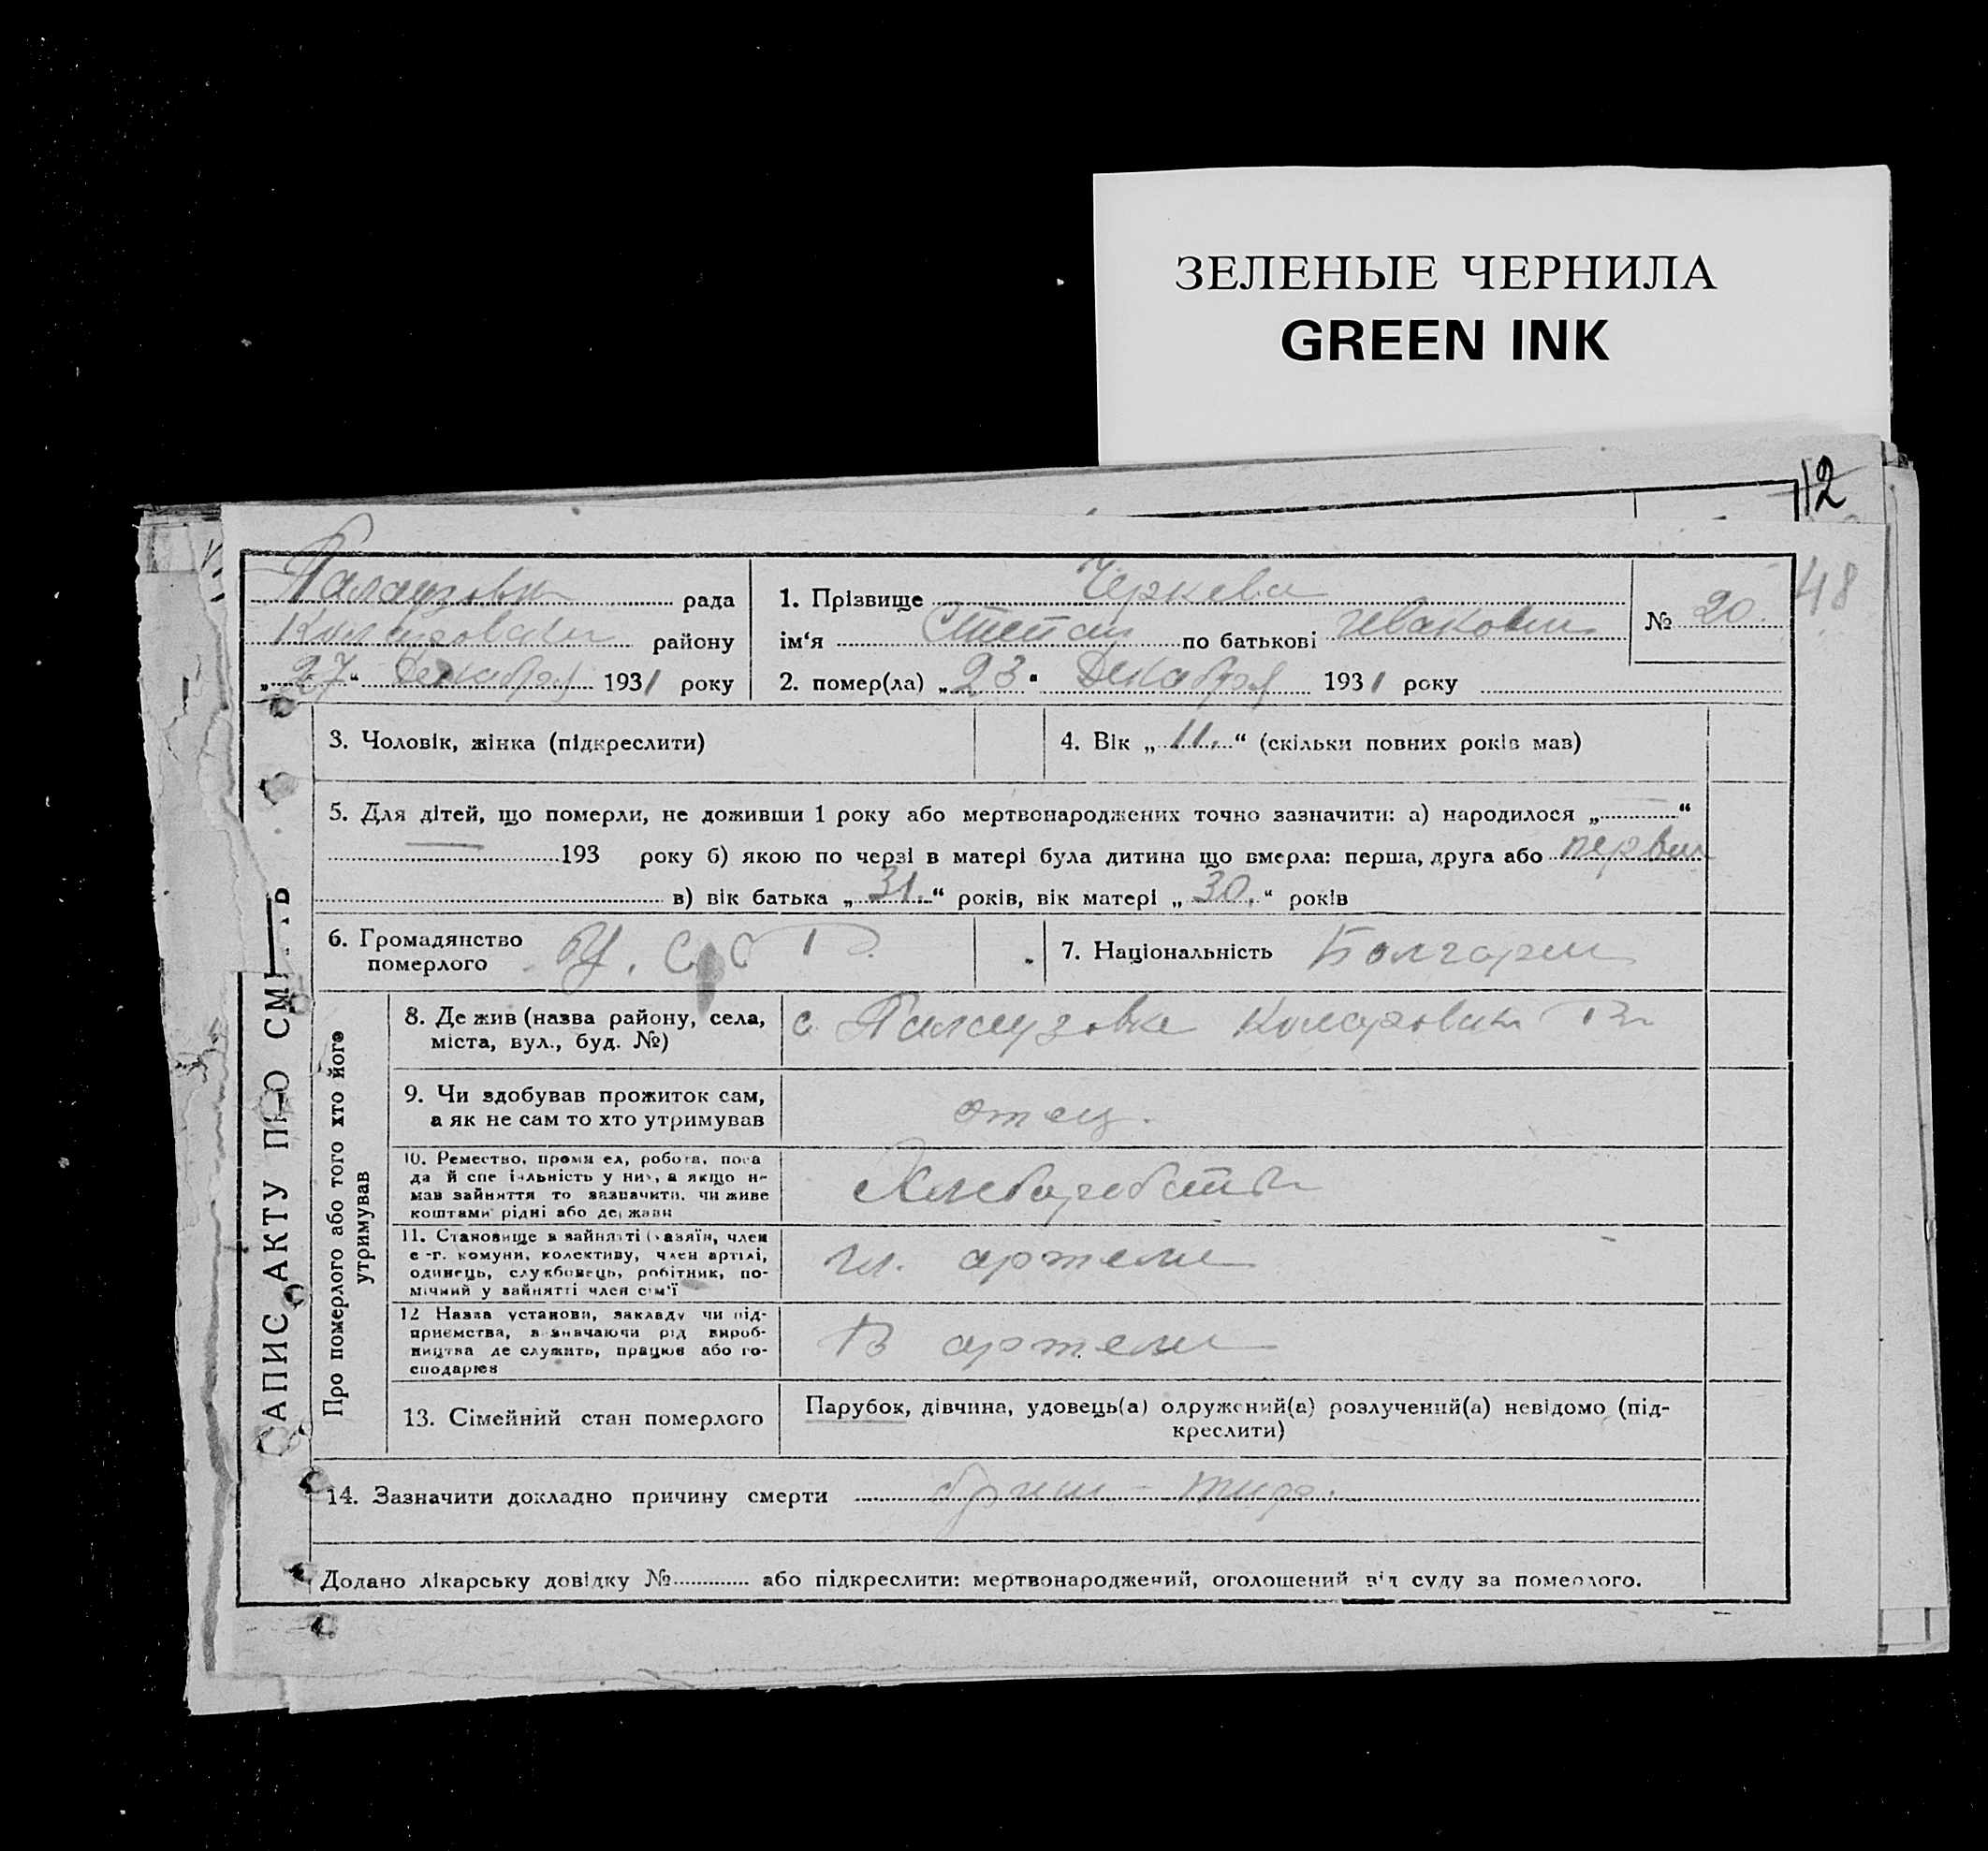 ЗЕЛЕНЫЕ ЧЕРНИЛА
GREEN INK
112
48
ЗАПИС АКТУ ПРО СМ
Палаузовка рада
району
„27“ Декабря 1931 року
1. Прізвище Черкева
№ 20.
ім‘я Степан по батькові Иванович
2. помер(ла) „23“ Декабря 1931 року
3. Чоловік, жінка (підкреслити)
4. Вік „11.“ (скільки повних років мав)
5. Для дітей, що померли, не доживши 1 року або мертвонароджених точно зазначити: а) народилося „—“
— 193 року б) якою по черзі в матері була дитина що вмерла: перша, друга або первый
в) вік батька „31.“ років, вік матері „30.“ років
6. Громадянство
померлого
7. Національність Болгарин
Про померлого або того хто його
утримував
8. Де жив (назва району, села,
міста, вул., буд. №)
с Палаузовка Коларовски Рн
9. Чи здобував прожиток сам,
а як не сам то хто утримував
отец.
10. Ремество, промисел, робота, поса
да й спеціальність у них, а якщо не
мав зайняття то зазначити, чи живе
коштами рідні або держави
11. Становище в зайнятті (хазяїн, член
с-г. комуни, колективу, член артілі,
одинець, службовець, робітник, по-
мічний у зайнятті член сім'ї
чл. артели
12 Назва установи, закладу чи під-
приємства, зазначаючи рід вироб-
ництва де служить, працює або го-
сподарює
В артели
13. Сімейний стан померлого
Парубок, дівчина, удовець(а) одружений(а) розлучений(а) невідомо (під-
креслити)
14. Зазначити докладно причину смерти брыш-тиф.
Додано лікарську довідку № або підкреслити: мертвонароджений, оголошений від суду за померлого.